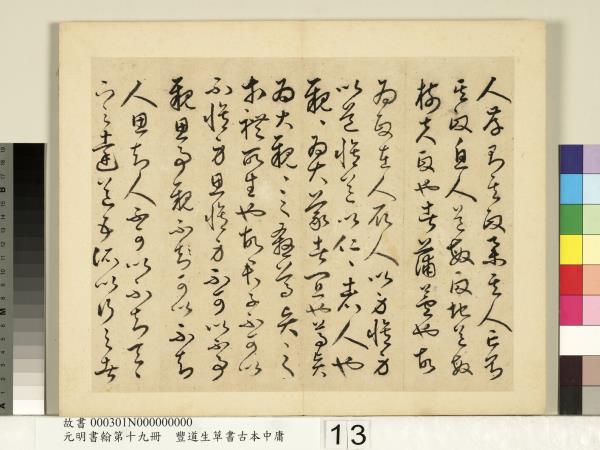 人存則其政舉其人亡則
其政息人道敏政地道敏
樹夫政也者蒲盧也故
為政在人取人以身修身
以道修道以仁〻者人也
親〻為大義者宜也尊賢
為大親〻之殺尊賢之
等禮所生也故君子不可以
不修身思修身不可以不事
親思事親不可以不知
人思知人不可以不知天〻
下之達道五所以行之者
故書 000301N000000000
元明書翰第十九冊 豐道生草書古本中庸
13